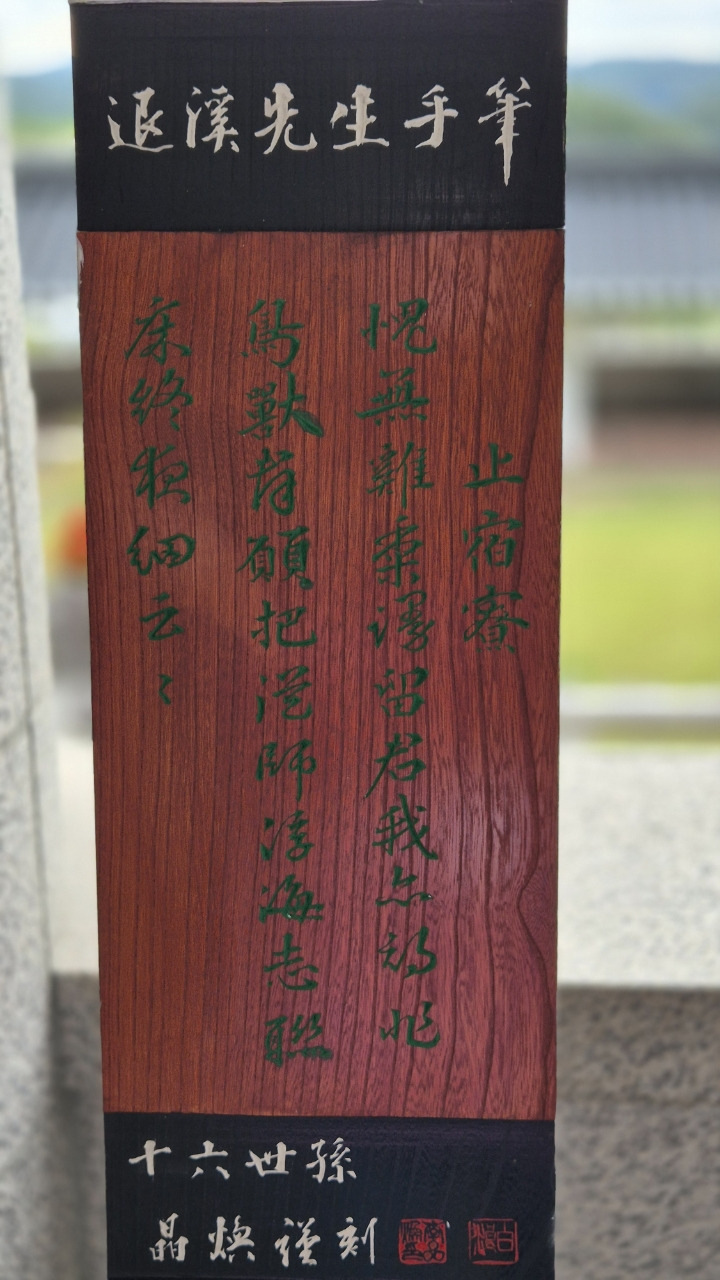 退溪先生手筆
止宿寮
愧無雞黍謾留君我亦初非
鳥獸群願把從師浮海志聯
床終夜細云〻
十六世孫
晶煥謹刻